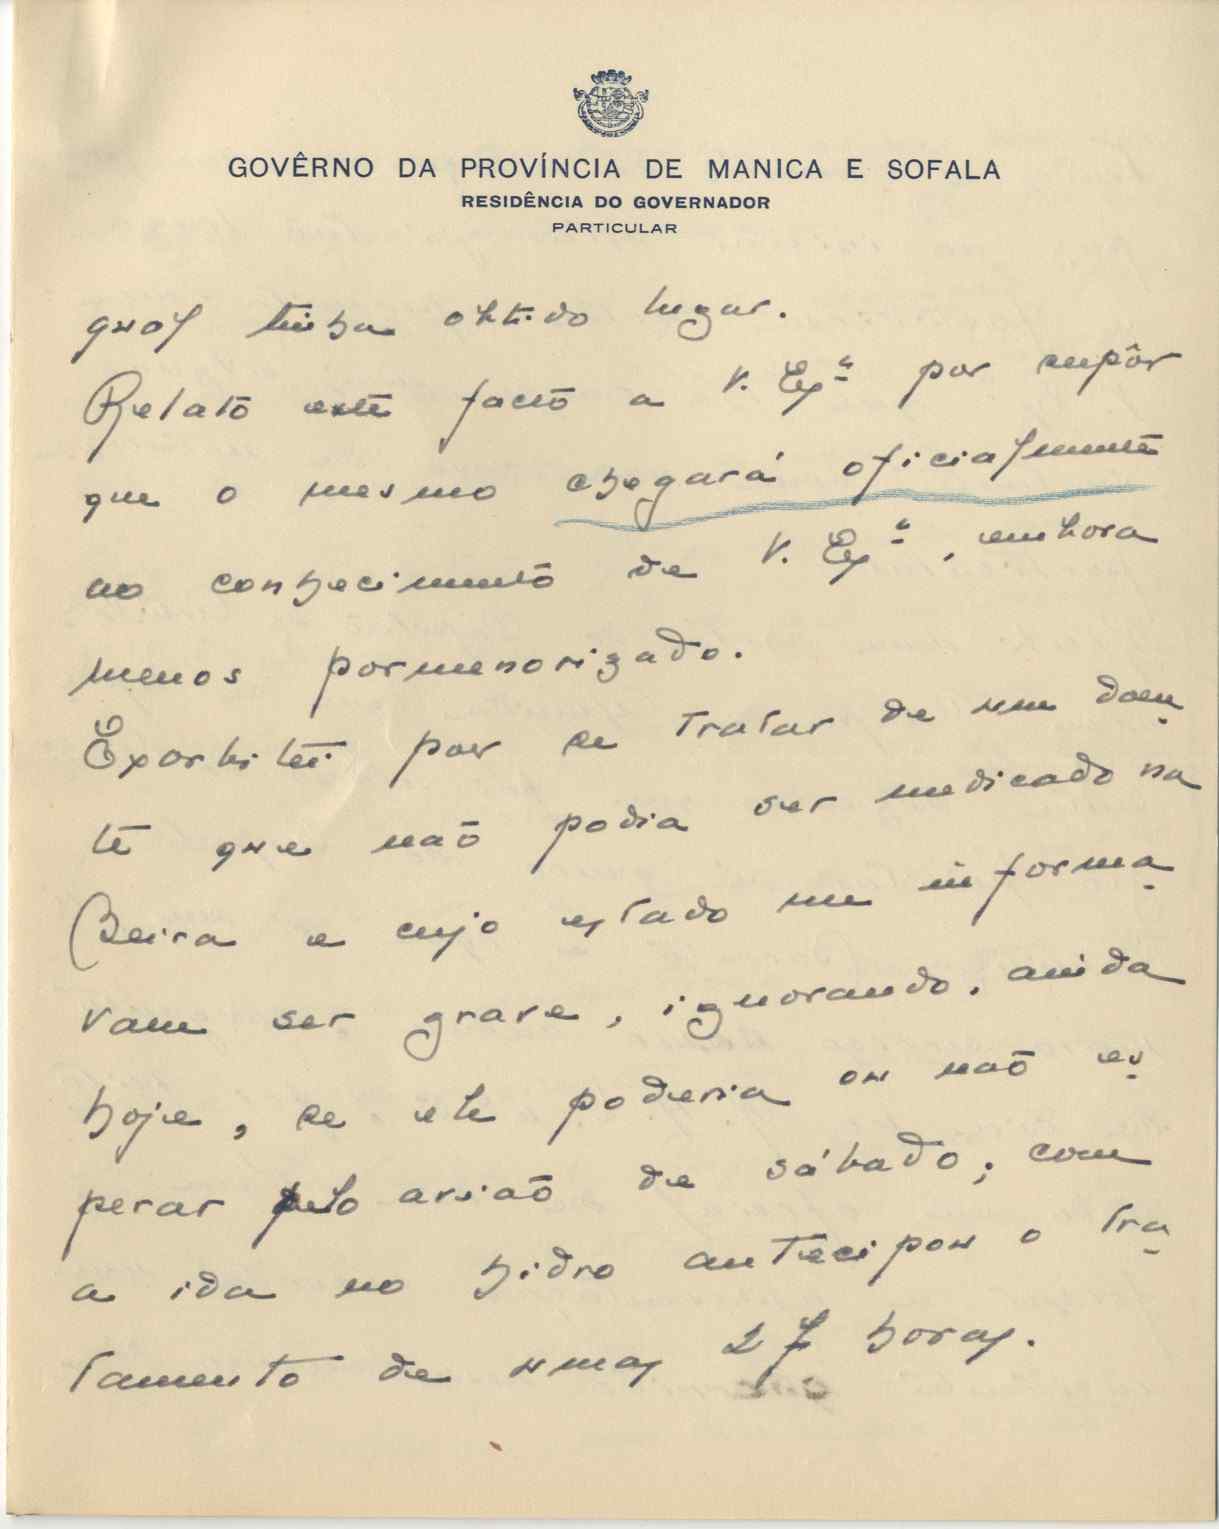 GOVÊRNO DA PROVÍNCIA DE MANICA E SOFALA
RESIDÊNCIA DO GOVERNADOR
PARTICULAR
qual tinha obtido lugar.
Relato este facto a V. Exª por supôr
que o mesmo chegará oficialmente
ao conhecimento de V. Exª, embora
menos pormenorizado.
Exorbitei por se tratar de um doen-
te que não podia ser medicado na
Beira e cujo estado me informa-
vam ser grave, ignorando, ainda
hoje, se ele poderia ou não es-
perar pelo avião de sábado; com
a ida no hidro antecipou o tra-
tamento de umas 27 horas.